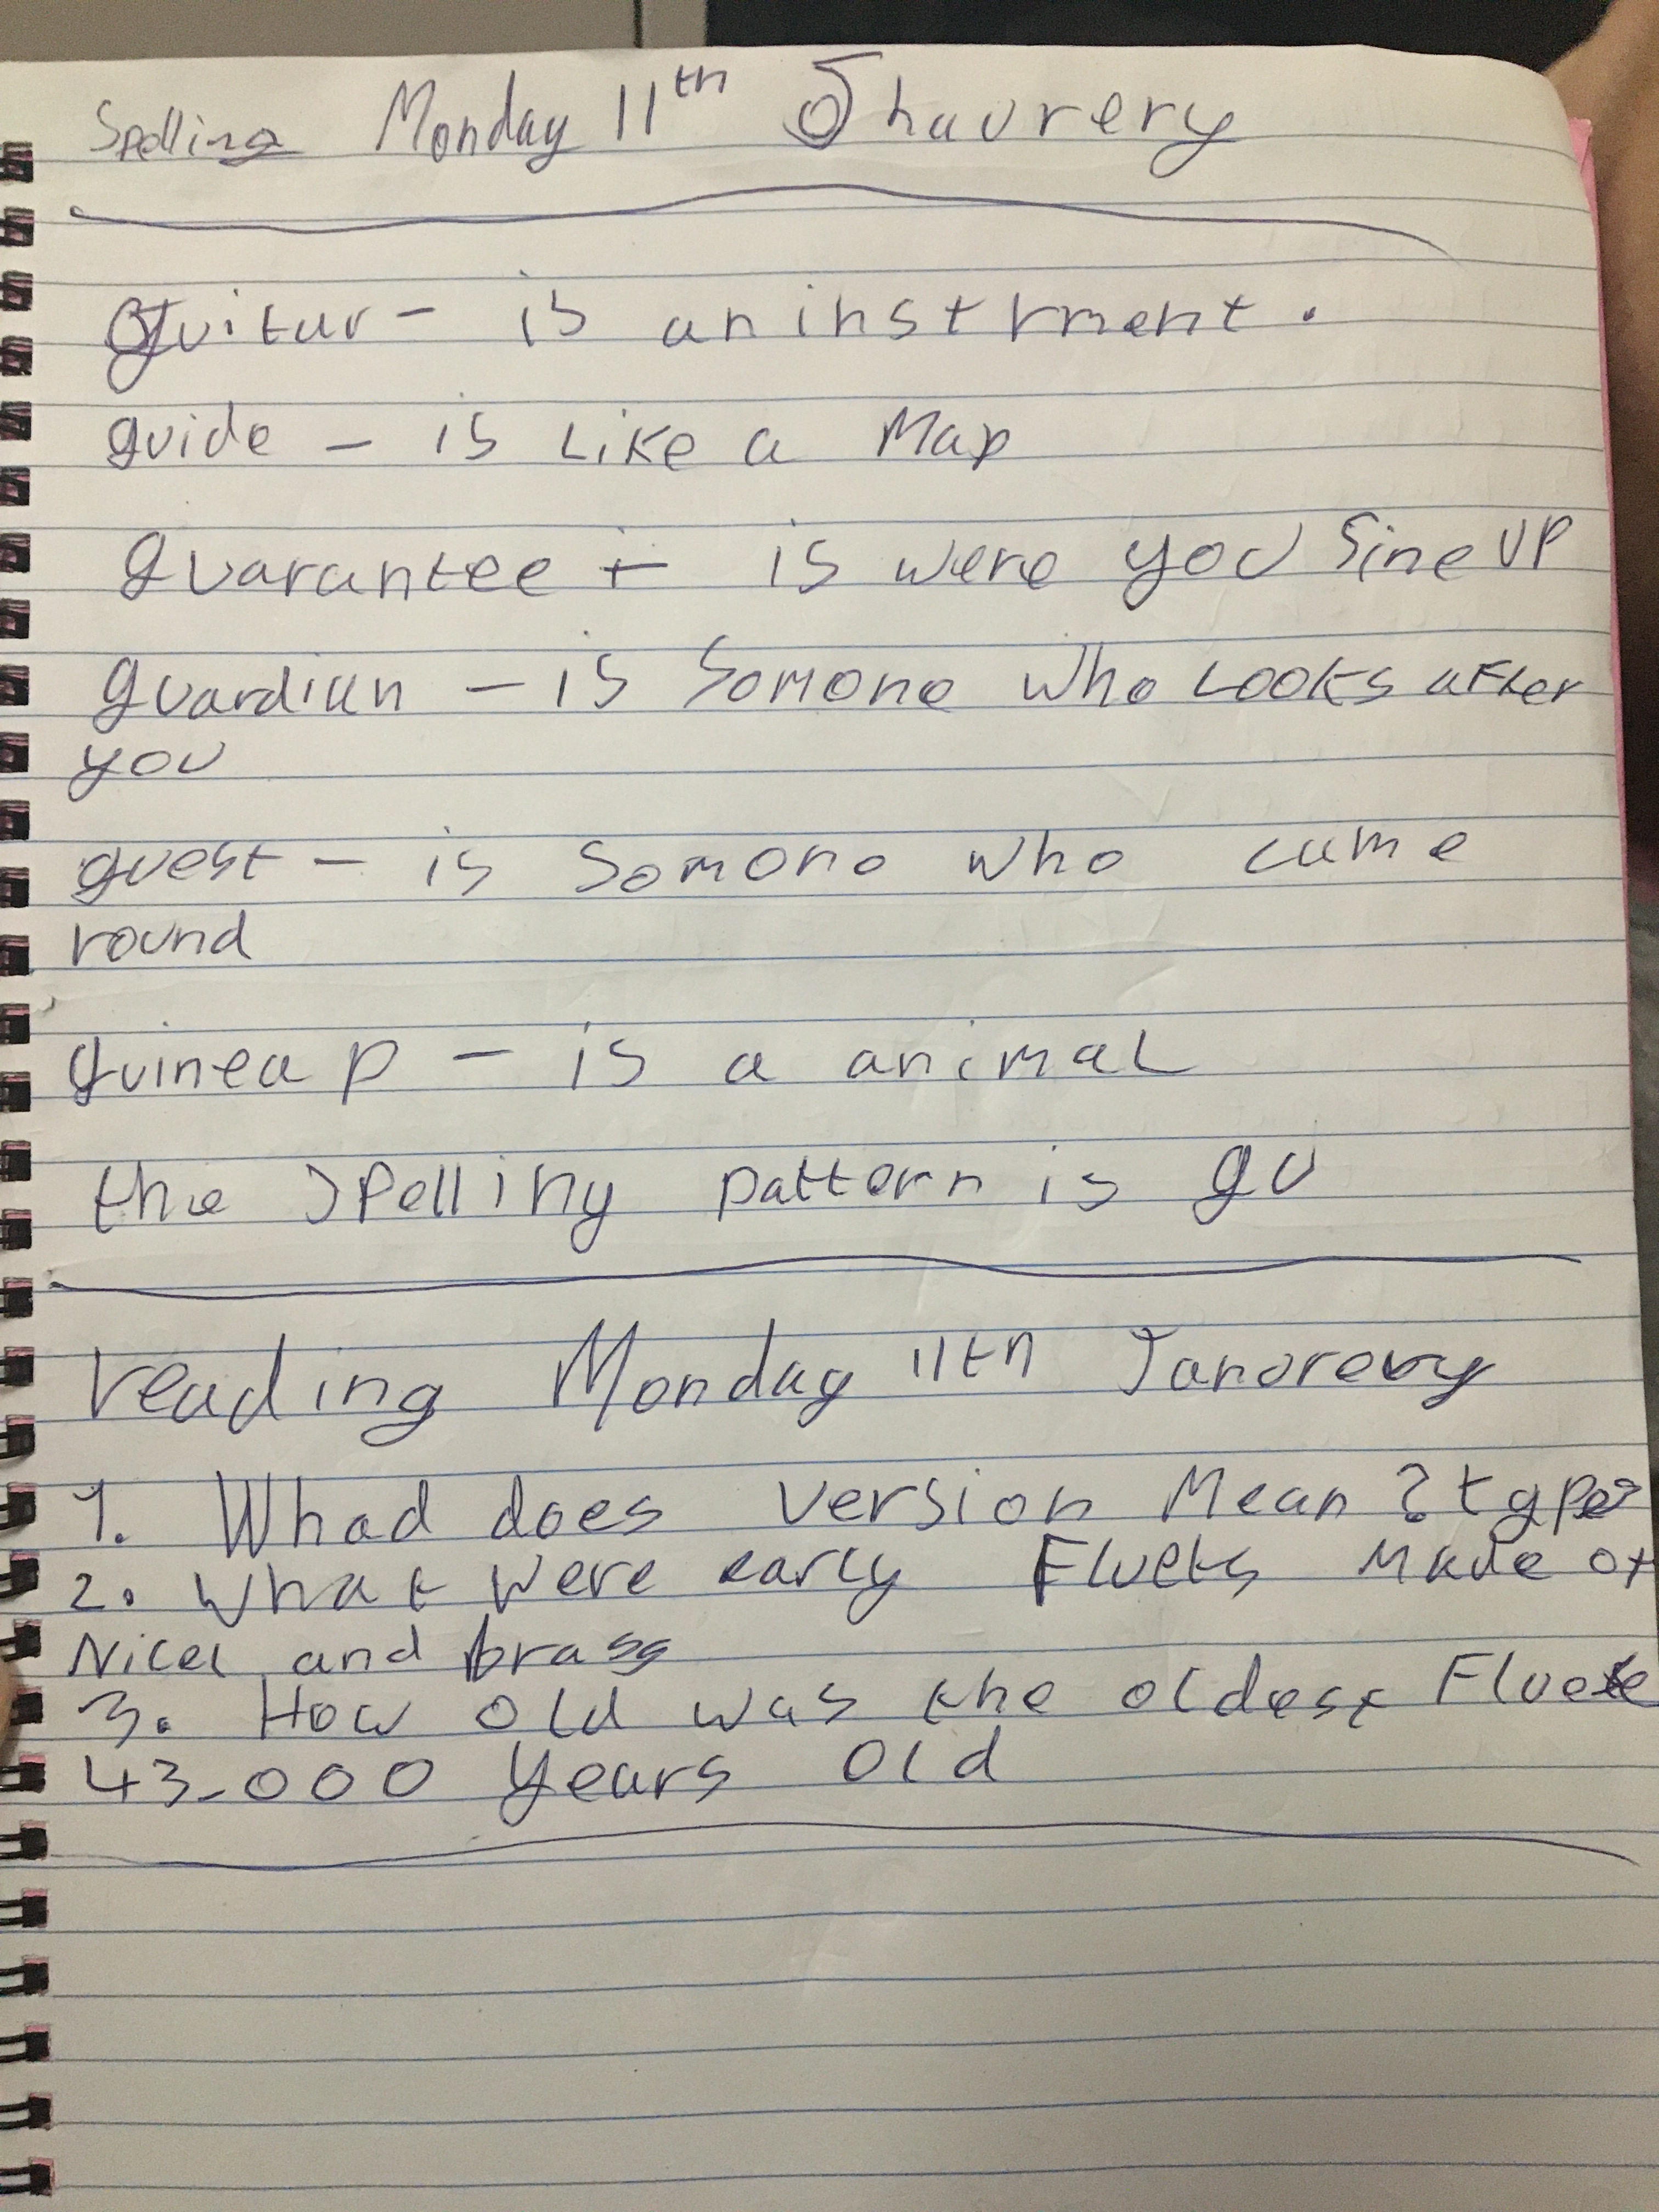 Spelling Monday 11th Jhaurery
guitar - is an instrment.
guide - is Like a Map
guarantee - is were you Sine UP
guardian - is Somone who Looks after
you
guest - is Somone who came
round
guinea p - is a animal
the spelling pattern is gu
reading Monday 11th Janorery
1. Whad does version Mean? type
2. What were early Fluets Made of
Nicel and brass
3. How old was the oldest Fluete
43,000 years old